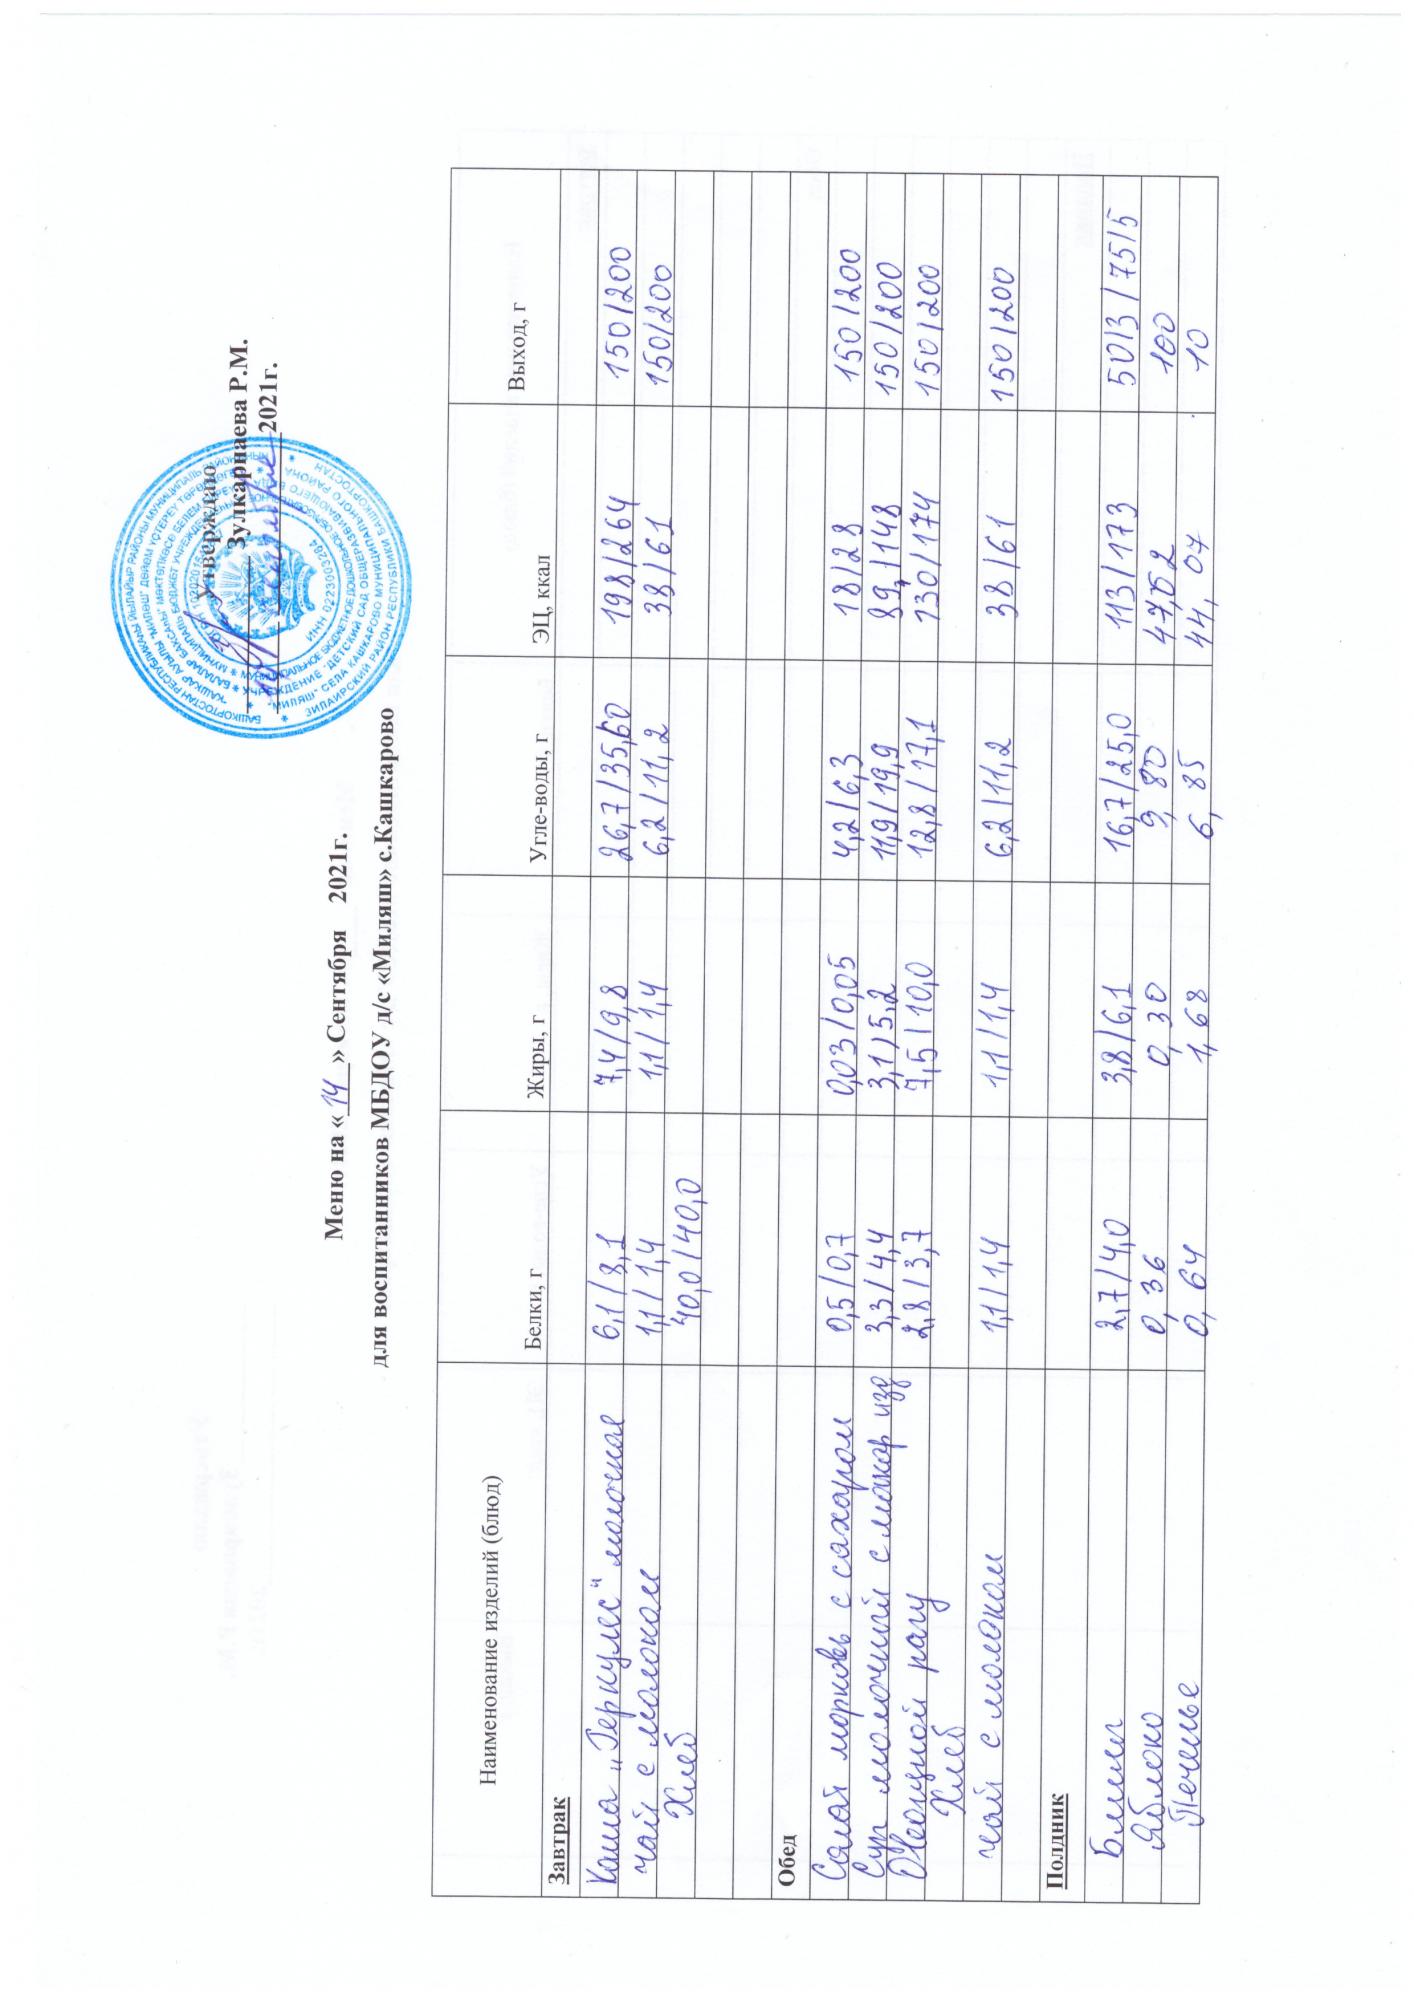 Утверждаю
Зулкарнаева Р.М.
2021г.
Меню на « 14 » Сентября 2021г.
для воспитанников МБДОУ д/с «Миляш» с.Кашкарово
Наименование изделий (блюд) Белки, г Жиры, г Угле-воды, г ЭЦ, ккал Выход, г
Завтрак
Каша „Геркулес“ молочная 6,1/8,1 7,4/9,8 26,7/35,60 198/264 150/200
чай с молоком 1,1/1,4 1,1/1,4 6,2/11,2 38/61 150/200
Хлеб 40,0/40,0
Обед
Салат морковь с сахаром 0,5/0,7 0,03/0,05 4,2/6,3 18/28 150/200
Суп молочный с макар изд 3,3/4,4 3,1/5,2 11,9/19,9 89,/148 150/200
Овощной рагу 2,8/3,7 7,5/10,0 12,8/17,1 130/174 150/200
Хлеб
чай с молоком 1,1/1,4 1,1/1,4 6,2/11,2 38/61 150/200
Полдник
Блины 2,7/4,0 3,8/6,1 16,7/25,0 113/173 50/3/75/5
Яблоко 0,36 0,30 9,80 47,02 100
Печенье 0,64 1,68 6,85 44,07 10
ИНН 0223003264
"МИЛЯШ" СЕЛА КАШКАРОВО МУНИЦИПАЛЬНОГО РАЙОНА
ЗИЛАИРСКИЙ РАЙОН РЕСПУБЛИКИ БАШКОРТОСТАН